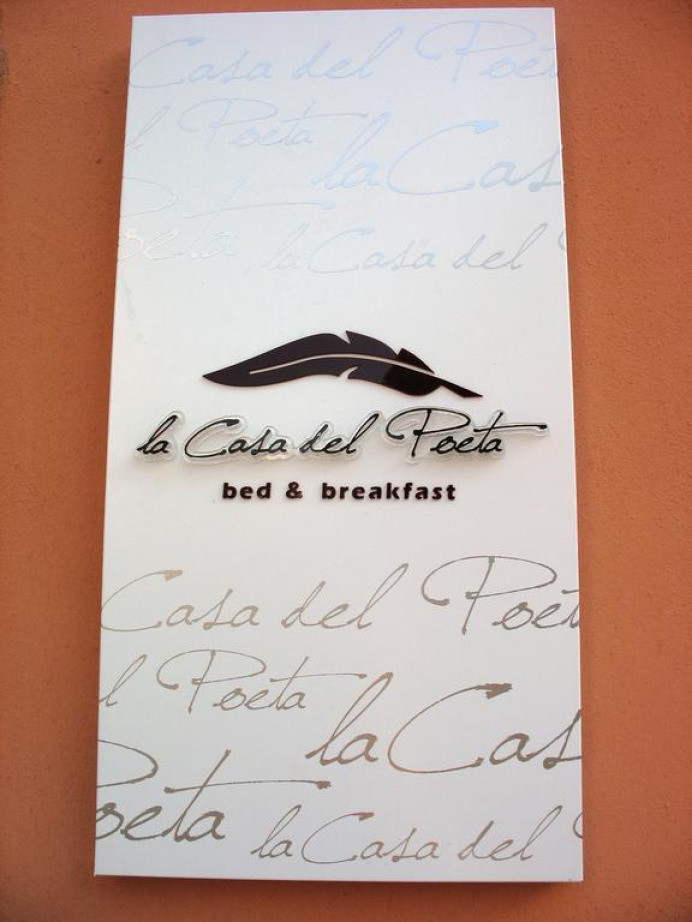 Casa del Poet
l Poeta
la Cas
oeta la Casa del
la Casa del Poeta
bed & breakfast
Casa del Poet
l Poeta
la Cas
Poeta la Casa del